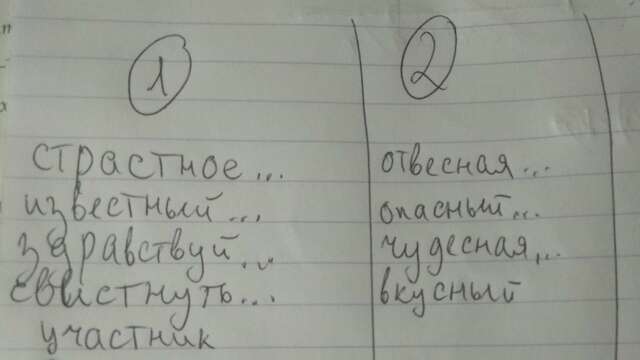 1
2
страстное...
известный...
здравствуй...
свистнуть...
участник
отвесная...
опасный...
чудесная...
вкусный